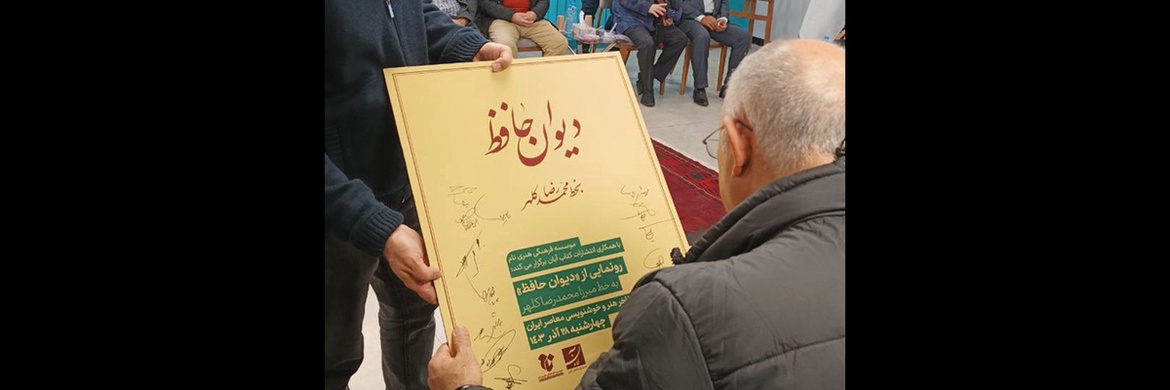 دیوان حافظ
بخط محمدرضا کلهر
موسسه فرهنگی هنری نام
با همکاری انتشارات کتاب آبان برگزار می کند:
رونمایی از «دیوان حافظ»
به خط میرزا محمدرضا کلهر
هنر و خوشنویسی معاصر ایران
چهارشنبه ۲۸ آذر ۱۴۰۳